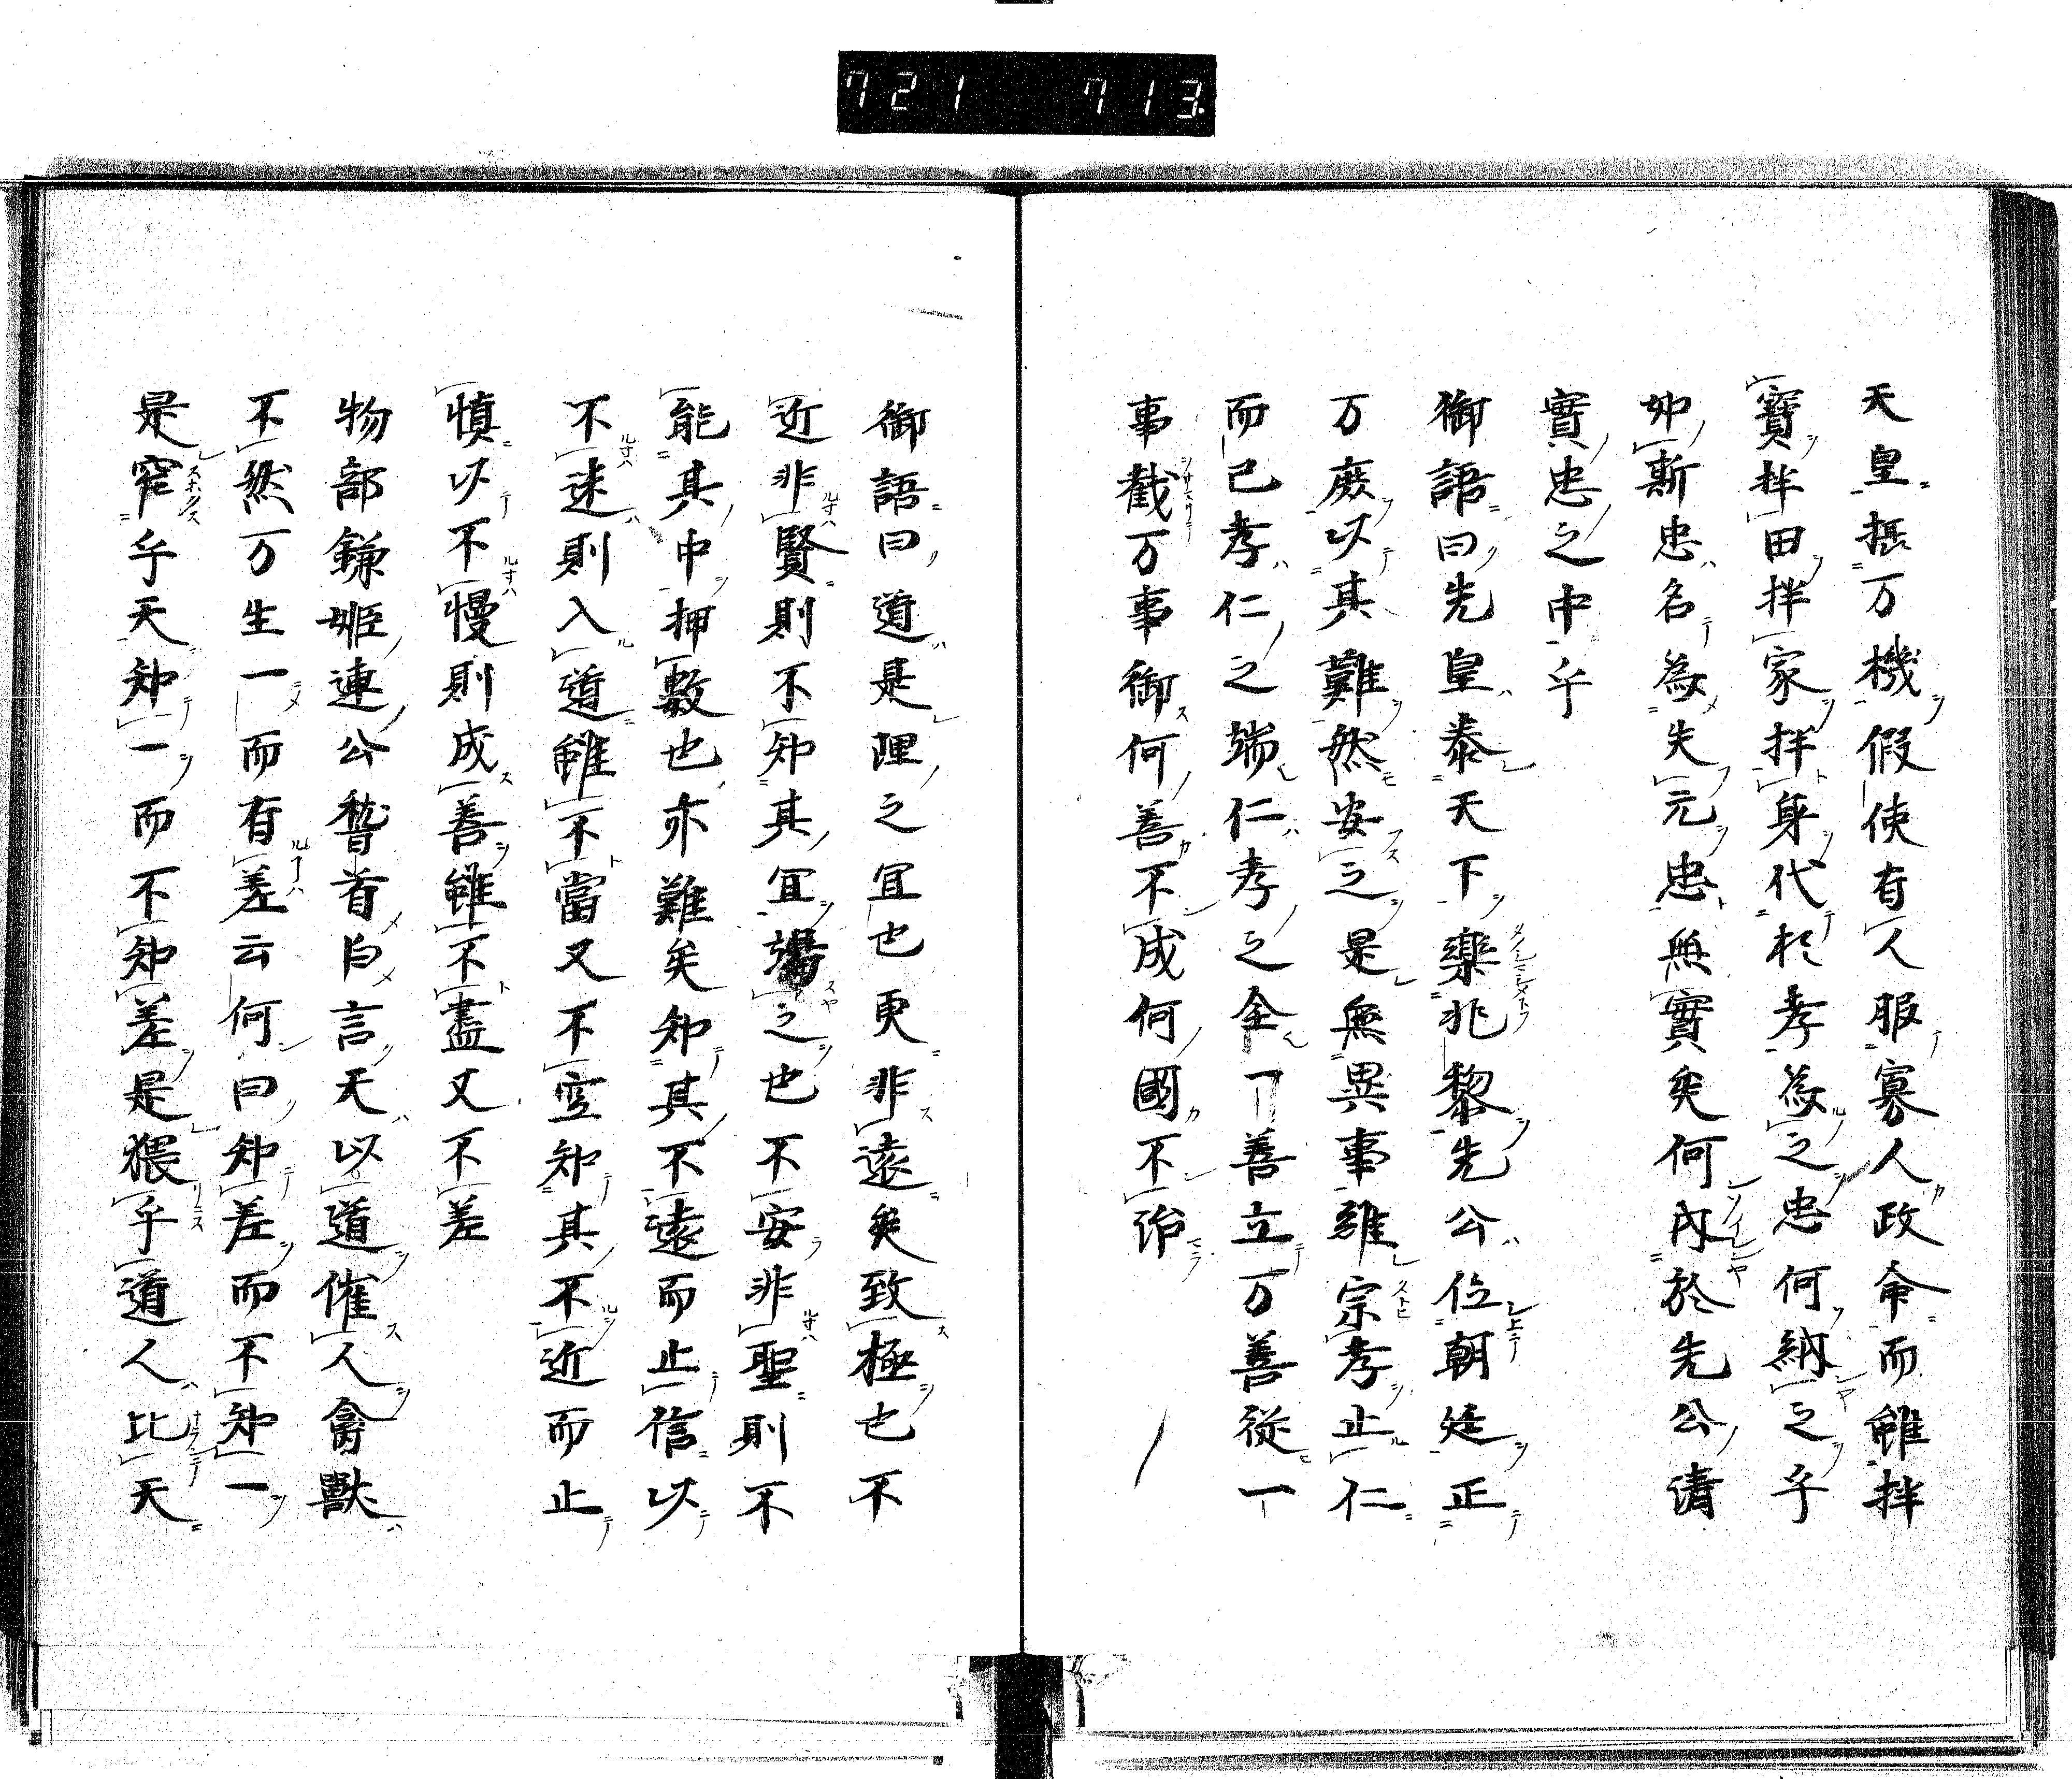 721 713
天皇振万機假使有人服寡人政命而雖拌
寶拌田拌家拌身代於孝為之忠何納之乎
斯忠名為失元忠無實矣何內於先公清
實忠之中乎
御語曰先皇泰天下樂兆黎先公位朝廷正
万廢以其難然安之是無異事雖宗孝止仁
而已孝仁之端仁孝之全一善立万善從一
事截万事御何善不成何國不治
御語曰道是理之宜也更非遠矣致極也不
近非賢則不知其宜場之也不安非聖則不
能其中押數也亦難矣知其不遠而止信以
不迷則入道雖不當又不空知其不近而止
慎以不慢則成善雖不盡又不差
物部鎌姬連公稽首白言天以道催人禽獸
不然万生一而有差云何曰知差而不知一
是窄乎天知一而不知差是猥乎道人比天